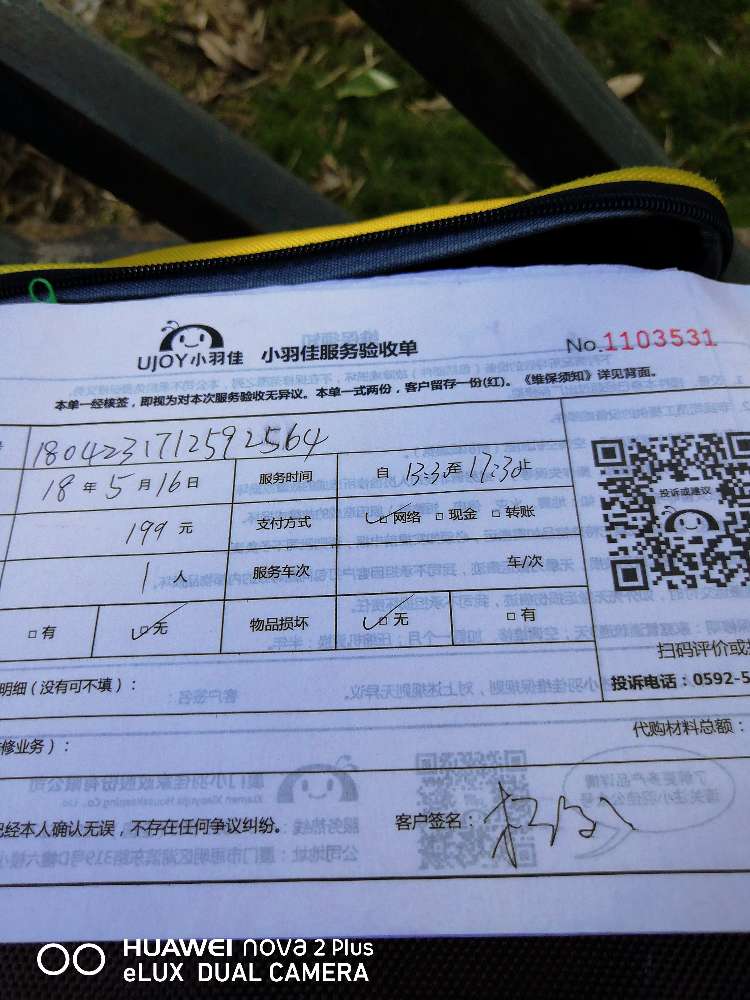 UJOY小羽佳 小羽佳服务验收单 No.1103531
本单一经核签，即视为对本次服务验收无异议。本单一式两份，客户留存一份(红)。《维保须知》详见背面。
1804231712592564
18 年 5 月 16 日 服务时间 自 13:30 至 17:30 止
199 元 支付方式 ☑网络 □现金 □转账
1 人 服务车次 车/次
□有 ☑无 物品损坏 ☑无 □有
投诉或建议
扫码评价或
明细（没有可不填）： 投诉电话：0592-5
修业务）： 代购材料总额：
已经本人确认无误，不存在任何争议纠纷。 客户签名：
HUAWEI nova 2 Plus
eLUX DUAL CAMERA